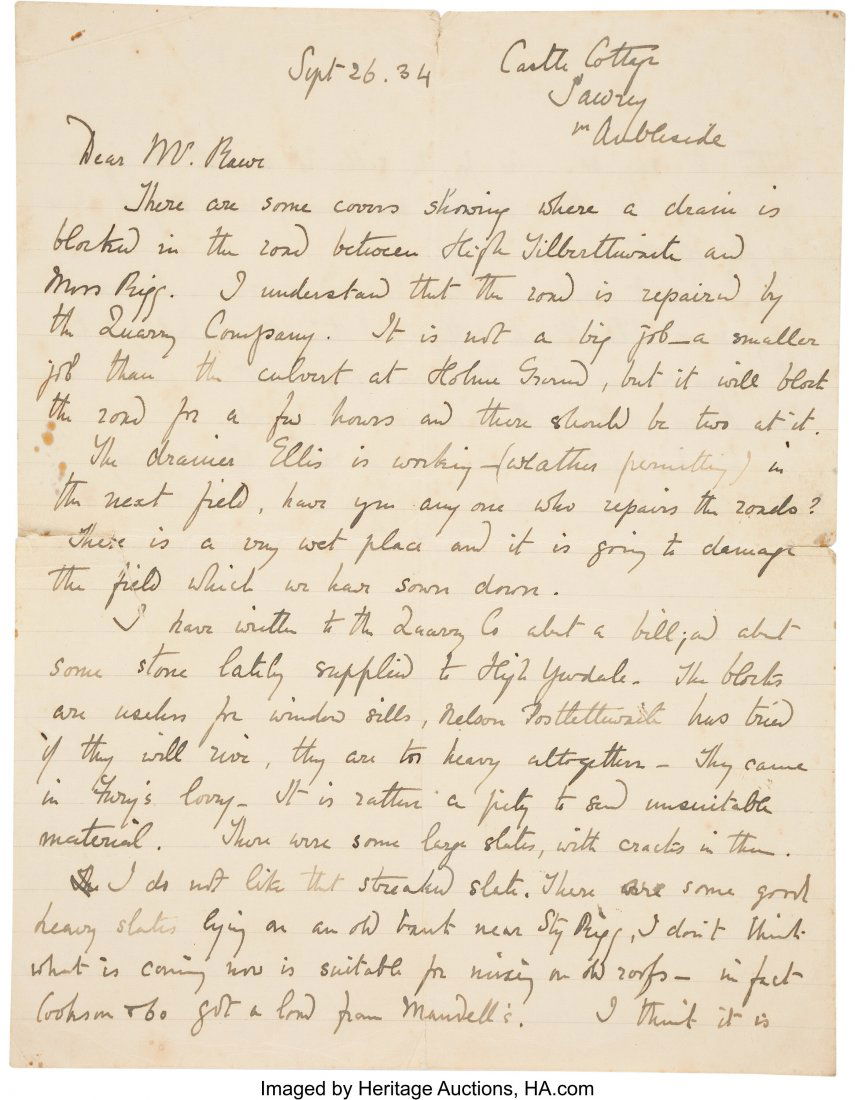 Sept 26. 34
Castle Cottage
Sawrey
nr Ambleside
Dear Mr.
There are some covers showing where a drain is
blocked in the road between High Tilberthwaite and
Moss Rigg. I understand that the road is repaired by
the Quarry Company. It is not a big job — a smaller
job than the culvert at Holme Ground, but it will block
the road for a few hours and there should be two at it.
The drainer Ellis is working — (weather permitting) in
the next field, have you any one who repairs the roads?
There is a very wet place and it is going to damage
the field which we have sown down.
I have written to the Quarry Co about a bill; and about
some stone lately supplied to High Yewdale. The blocks
are useless for window sills, Nelson Postlethwaite has tried
if they will rive, they are too heavy altogether — They came
in lorry — It is rather a pity to send unsuitable
material. There were some large slates, with cracks in them.
I do not like that streaked slate. There are some good
heavy slates lying on an old bank near Sty Rigg, I don't think
what is coming now is suitable for mixing on old roofs — in fact
Cookson & Co got a load from Mandell's. I think it is
Imaged by Heritage Auctions, HA.com